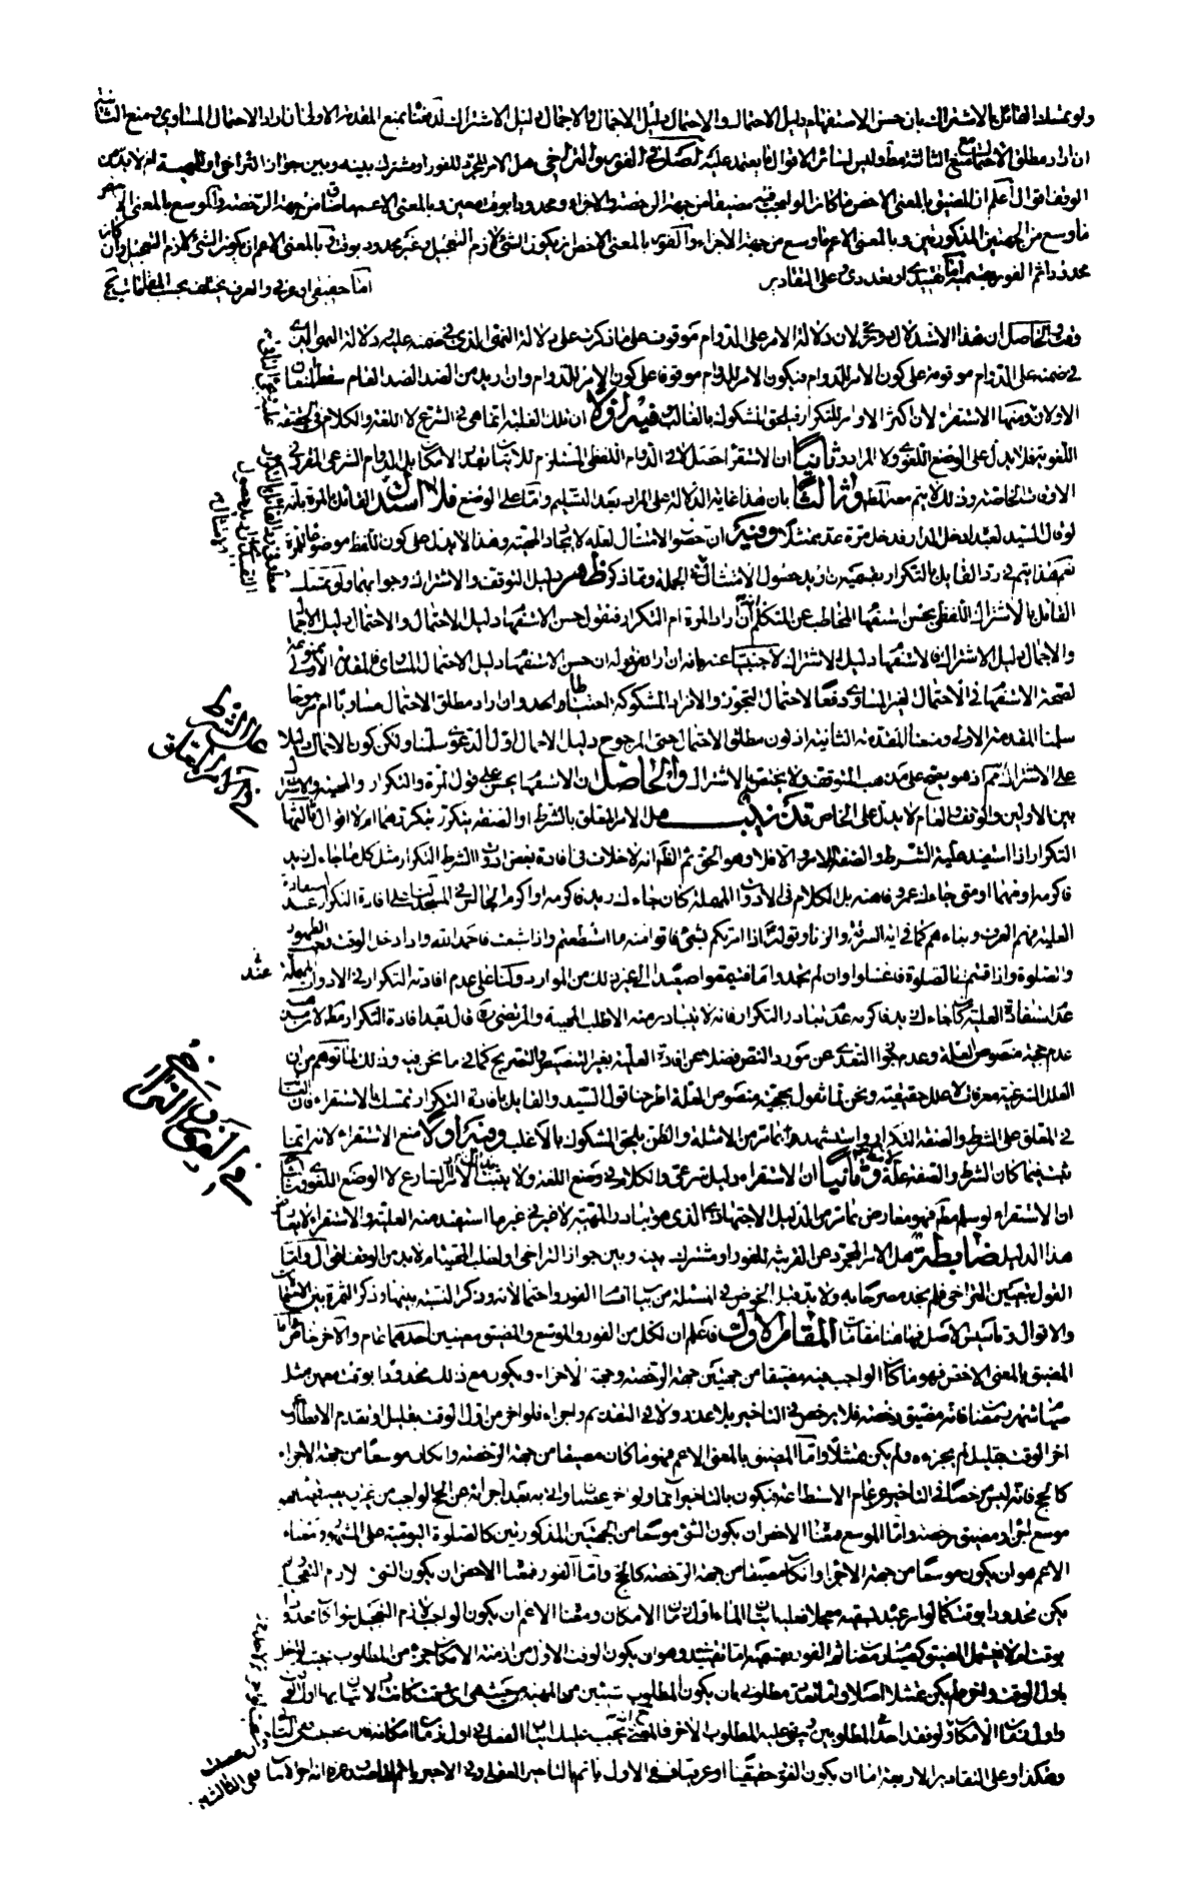 ولو تمسك القائل بالاشتراك بان حسن الاستفهام دليل الاحتمال والاحتمال دليل الاجمال والاجمال دليل الاشتراك لدفعنا بمنع المقدمة الاولى ان اراد الاحتمال المساوي ومنع الثانية
ان اراد مطلق الاحتمال مع منع الثالثة مط وليس لسائر الاقوال ما يعتمد عليه اصل في الفور والتراخي هل الامر المجرد للفور او مشترك بينه وبين جواز التراخي او للمهية ام لا بد من
الوقف اقوال اعلم ان المضيق بالمعنى الاخص ما كان الواجب فيه مضيقا من جهة الرخصة والاجزاء ومحدودا بوقت معين وبالمعنى الاعم ما ضاق من جهة الرخصة والموسع بالمعنى الاخص هو
ما وسع من الجهتين المذكورتين وبالمعنى الاعم ما وسع من جهة الاجزاء والفور بالمعنى الاخص ان يكون الشيء لازم التعجيل وغير محدود بوقت وبالمعنى الاعم ان يكون الشيء لازم التعجيل وان كان
محدودا ثم الفور بقسميه اما تقييدي او تعددي وعلى التقادير
اما حقيقي او عرفي والعرف يختلف بحسب المقامات
وفي الحاصل ان هذا الاستدلال دوري لان دلالة الامر على الدوام موقوف على ما ذكرت على دلالة النهي الذي في ضمنه عليه ودلالة النهي الذي
في ضمنه على الدوام موقوفة على كون الامر للدوام فيكون الامر للدوام موقوفا على كون الامر للدوام وان اريد من الضد الضد العام سقط
الاولان ومنها الاستقراء لان اكثر الاوامر للتكرار فيلحق المشكوك بالغالب وفيه اولا ان تلك الغلبة انما هي في الشرع لا اللغة والكلام في الحقيقة
اللغوية فلا يدل على الوضع اللغوي ولا المراد وثانيا ان الاستقراء حصل لا في الدوام اللفظي المستلزم للاتيان بقدر الامكان بل الدوام الشرعي المقرر في
الاوقات الخاصة وذلك لا يتم معه المط وثالثا بان هذا غاية الدلالة على المراد بعد التسليم واما على الوضع فلا استدل القائل بالمرة بانه
لو قال السيد لعبده ادخل الدار فدخل مرة عد ممتثلا وفيه ان حصول الامتثال لعله لايجاد المهية وهذا لا يدل على كون اللفظ موضوعا للمرة
نعم هذا يتم في رد القائل بالتكرار بقسميه ان اريد حصول الامتثال في الجملة ومما ذكر ظهر دليل التوقف والاشتراك وجوابهما ولو تمسك
القائل بالاشتراك اللفظي بحسن استفهام المخاطب عن المتكلم انه اراد المرة ام التكرار فنقول حسن الاستفهام دليل الاحتمال والاحتمال دليل الاجمال
والاجمال دليل الاشتراك فالاستفهام دليل الاشتراك لاجبنا عنه بانه ان اراد بقوله ان حسن الاستفهام دليل الاحتمال المساوي فالمقدمة الاولى ممنوعة
لصحة الاستفهام في الاحتمال الغير المساوي دفعا لاحتمال التجوز والافراد المشكوكة احتياطا وان اراد مطلق الاحتمال مساويا ام مرجوحا
سلمنا المقدمة الاولى ومنعنا المقدمة الثانية اذ كون مطلق الاحتمال حتى المرجوح دليل الاجمال اول الدعوى سلمنا ولكن كون الاجمال دليلا
على الاشتراك مم اذ هو يصح على مذهب المتوقف ولا يختص بالاشتراك والحاصل ان الاستفهام يحسن على قول المرة والتكرار والمهية والاشتراك
بين الاولين والوقف والعام لا يدل على الخاص قد نيب هل الامر المعلق بالشرط او الصفة يتكرر بتكررهما ام لا اقوال ثالثها
التكرار اذا استفيد علية الشرط والصفة للامر والا فلا وهو الحق ثم الظ انه لا خلاف في افادة بعض ادوات الشرط التكرار مثل كلما جاءك زيد
فاكرمه او مهما او متى جاءك عمرو فاهنه بل الكلام في الادوات المهملة كان جاءك زيد فاكرمه او اكرم الجالس في المسجد لنا على افادة التكرار عند استفادة
العلية فهم العرف وبناءهم كما في اية السرقة والزنا وقوله اذا امرتكم بشيء فاتوا منه ما استطعتم واذا شبعت فاحمد الله واذا دخل الوقت وجب الطهور
والصلوة واذا قمتم الى الصلوة فاغسلوا وان لم تجدوا ماء فتيمموا صعيدا الى غير ذلك من الموارد ولنا على عدم افادته التكرار في الادوات المهملة عند
عدم استفادة العلية كان جاءك زيد فاكرمه عدم تبادر التكرار فانه لا يتبادر منه الا طلب المهية والمرتضى ره قال بعدم افادة التكرار مط لامر من
عدم حجية منصوص العلة وعدم جواز التعدي عن مورد النص فضلا عن افادة العلية بغير التنصيص والتصريح كما في ما نحن فيه وذلك لما توهم من ان
العلل الشرعية معرفات لا علل حقيقية ونحن لما نقول بحجية منصوص العلة اخرجنا قول السيد والقائل بافادة التكرار تمسك بالاستقراء فان الغالب
في المعلق على الشرط والصفة التكرار واستشهد بما مر من الامثلة والظن يلحق المشكوك بالاغلب وفيه اولا منع الاستقراء لانه انما
ثبت فيما كان الشرط والصفة علة وثانيا ان الاستقراء دليل شرعي والكلام في وضع اللغة ولا يثبت الا امر الشارع لا الوضع اللغوي وثالثا
ان الاستقراء لو سلم مط فهو معارض بما مر من الدليل الاجتهادي الذي هو تبادر المهية لا غير في غير ما استفيد منه العلية والاستقراء لا يقابل
هذا الدليل ضابطة هل الامر المجرد عن القرينة للفور او مشترك بينه وبين جواز التراخي او لطلب المهية ام لا بد من الوقف اقوال واما
القول بتعيين التراخي فلم نجد مصرحا به ولا بد قبل الخوض في المسئلة من بيان اقسام الفور واحتمالاته وذكر النسبة بينها وذكر الثمرة بين الاحتمالات
والاقوال وتاسيس الاصل فهاهنا مقامات المقام الاول فاعلم ان لكل من الفور والموسع والمضيق معنيين احدهما عام والآخر خاص اما
المضيق بالمعنى الاخص فهو ما كان الواجب فيه مضيقا من جهتين جهة الرخصة وجهة الاجزاء ويكون مع ذلك محدودا بوقت معين مثل
صيام شهر رمضان فانه مضيق رخصة فلا يرخص في التاخير بلا عذر ولا في التقديم واجزاء فلو اخر من اول الوقت بقليل او تقدم الافطار
اخر الوقت بقليل لم يجزه ولم يكن ممتثلا واما المضيق بالمعنى الاعم فهو ما كان مضيقا من جهة الرخصة وان كان موسعا من جهة الاجزاء
كالحج فانه ليس مرخصا في التاخير عن عام الاستطاعة فيكون بالتاخير آثما ولو اخر عصيانا واتى به بعد اجزائه عن الحج الواجب
موسع اجزاء ومضيق رخصة واما الموسع فمعناه الاخص ان يكون الشيء موسعا من الجهتين المذكورتين كالصلوة اليومية على المشهور ومعناه
الاعم هو ان يكون موسعا من جهة الاجزاء وان كان مضيقا من جهة الرخصة كالحج واما الفور فمعناه الاخص ان يكون الشيء لازم التعجيل ولم
يكن محدودا بوقت كما لو امر عبده بسقيه معجلا فعليه اتيان الماء اول زمان الامكان ومعناه الاعم ان يكون الواجب لازم التعجيل سواء كان محدودا
بوقت ام لا فيشمل المضيق كصيام رمضان ثم الفور بقسميه اما تقييدي وهو ان يكون الوقت الاول من ازمنة الامكان جزء من المطلوب بحيث لو اخل
باول الوقت واخر لم يكن ممتثلا اصلا واما تعدد مطلوبي بان يكون المطلوب شيئين من المهية من حيث هي في اي وقت كانت والاتيان بها اول
واول زمان الامكان ولو فقد احد المطلوبين بقي عليه المطلوب الآخر فالمعنى يجب عليك اتيان الفعل في اول زمان امكانه فان عصيت ففي الثاني
وهكذا وعلى التقادير الاربعة اما ان يكون الفور حقيقيا او عرفيا ففي الاول ياثم بالتاخير العقلي وفي الاخير
في الامر المعلق على الشرط
في الفور والتراخي
وان عصيت ففي الثالث